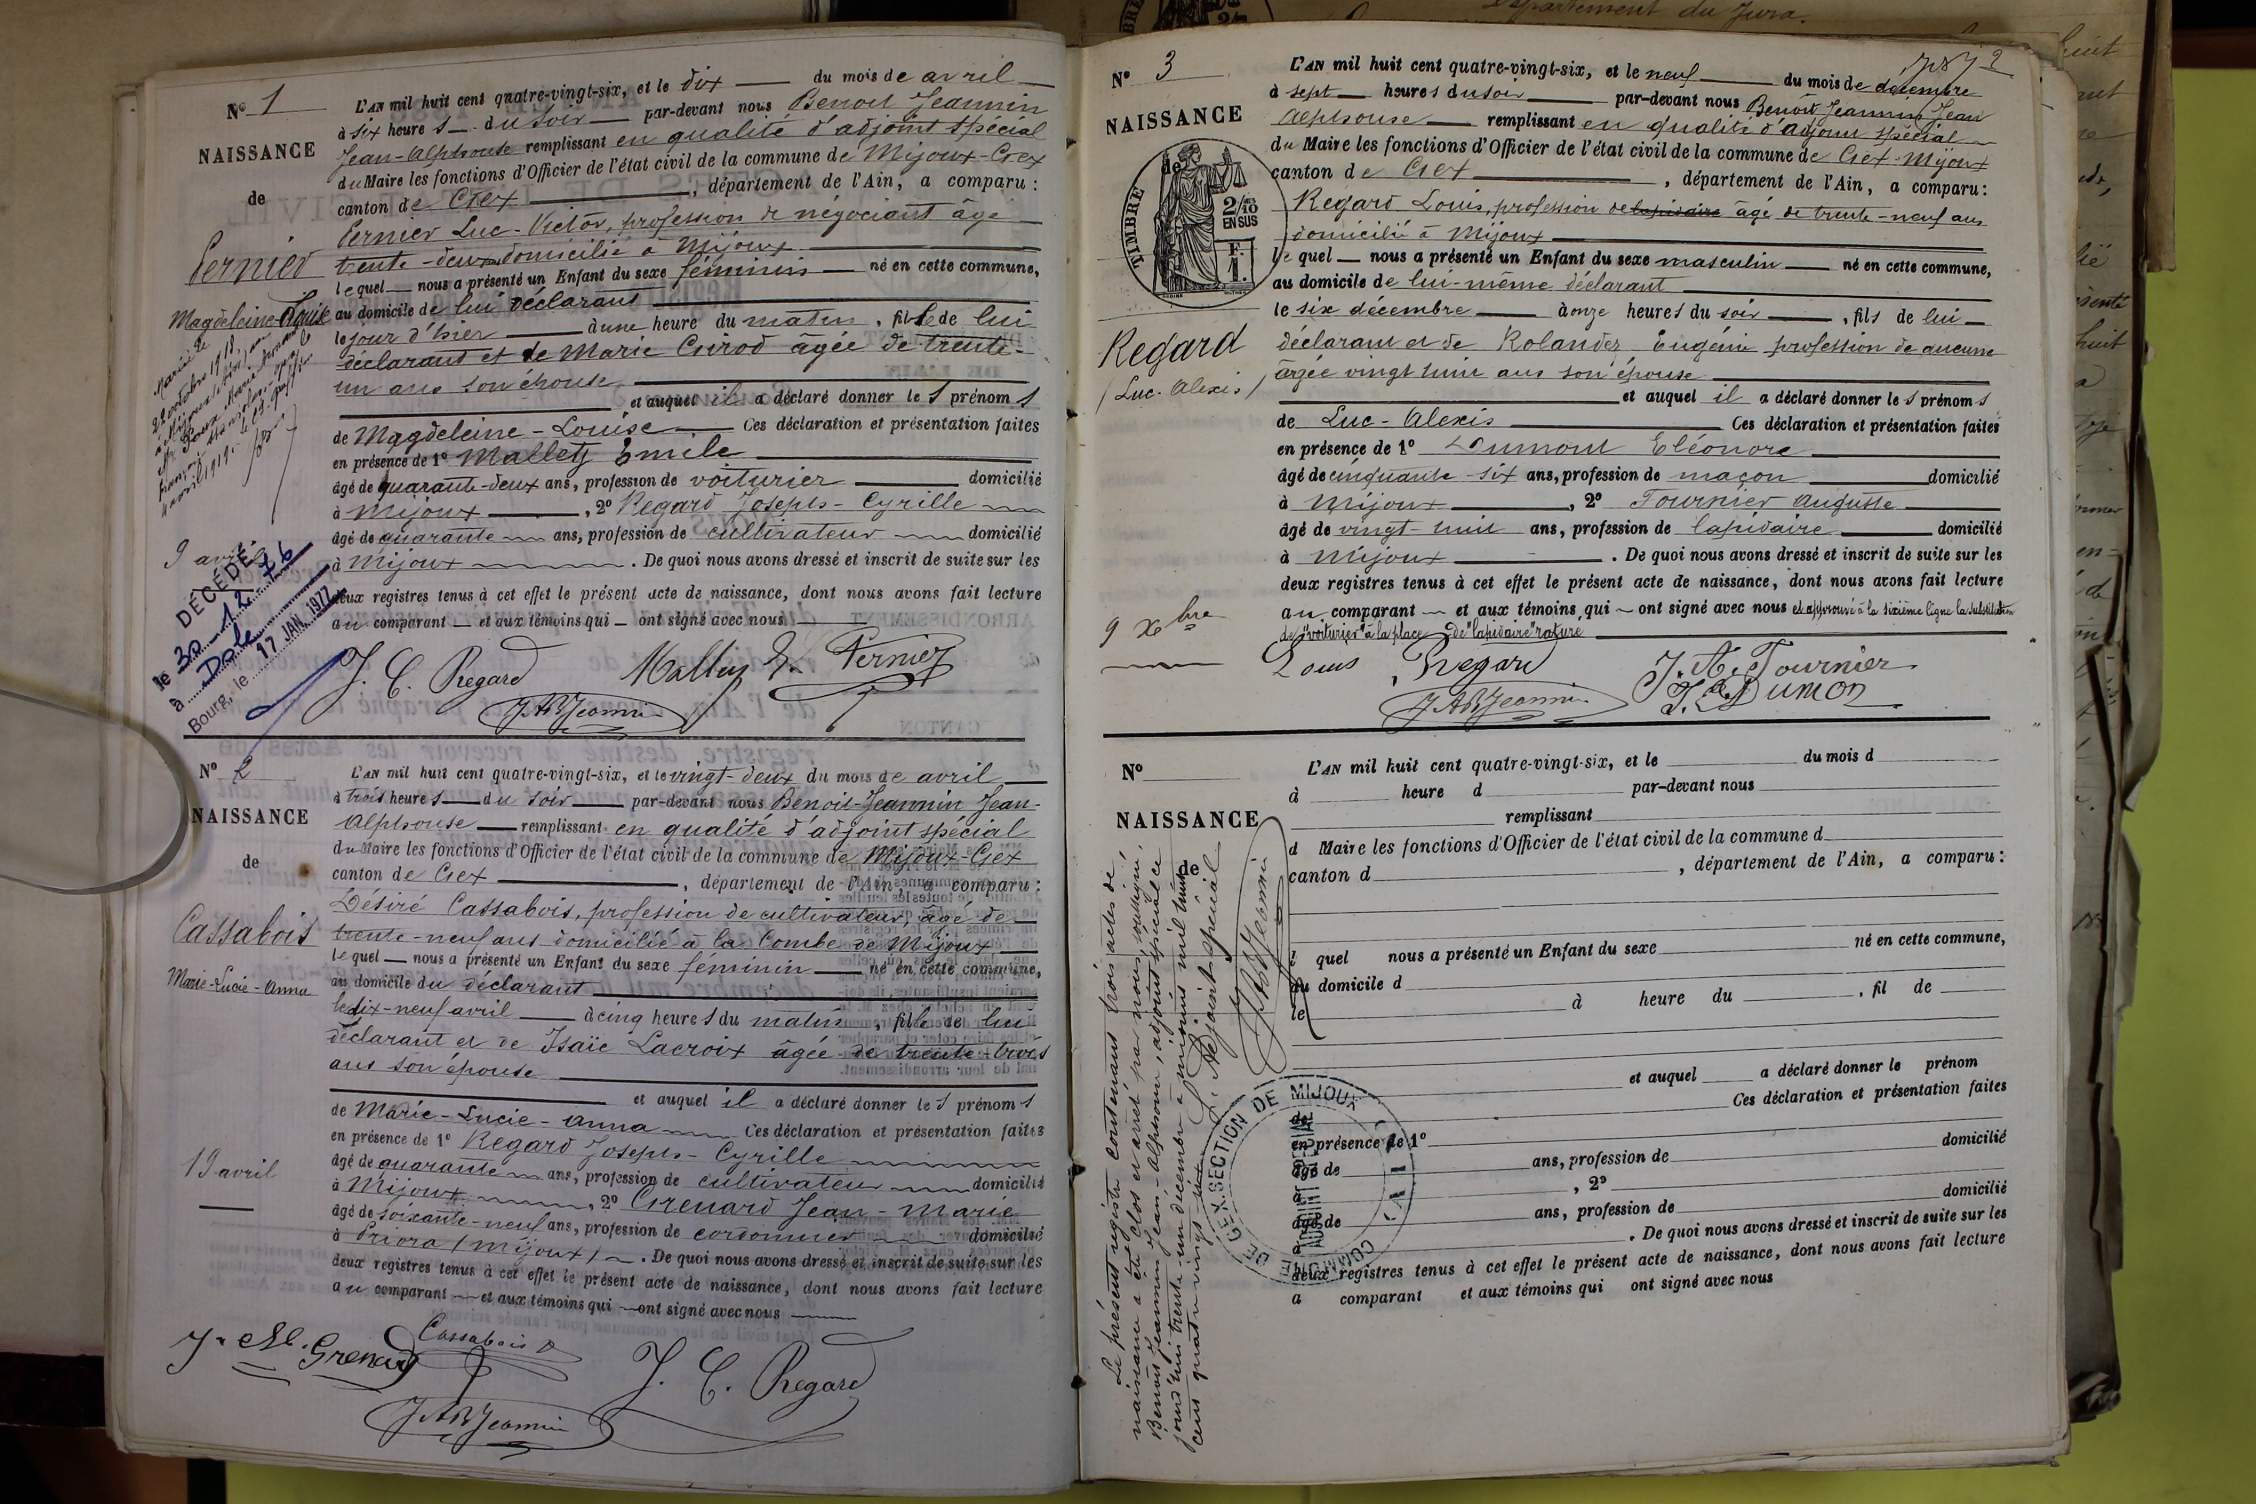 N° 1
NAISSANCE
de
Pernier
Magdeleine-Louise
Mariée le
22 octobre 1918
9 avril
DÉCÉDÉ
le 30-12-76
à Dole
Bourg, le 17 JAN. 1977
L'AN mil huit cent quatre-vingt-six, et le dix du mois de avril
à six heures du soir par-devant nous Benoit Jeannin
Jean-Alphonse remplissant en qualité d'adjoint spécial
du Maire les fonctions d'Officier de l'état civil de la commune de Mijoux-Gex
canton de Gex, département de l'Ain, a comparu :
Pernier Luc-Victor, profession de négociant âgé
trente-deux domicilié à Mijoux
lequel nous a présenté un Enfant du sexe féminin né en cette commune,
au domicile de lui déclarant
le jour d'hier à une heure du matin, fille de lui
déclarant et de Marie Girod agée de trente-
un ans son épouse
et auquel il a déclaré donner les prénoms
de Magdeleine-Louise Ces déclaration et présentation faites
en présence de 1° Mallet Emile
âgé de quarante-deux ans, profession de voiturier domicilié
à Mijoux, 2° Regard Joseph-Cyrille
âgé de quarante ans, profession de cultivateur domicilié
à Mijoux. De quoi nous avons dressé et inscrit de suite sur les
deux registres tenus à cet effet le présent acte de naissance, dont nous avons fait lecture
au comparant et aux témoins qui ont signé avec nous
J. C. Regard Pernier
JABJeannin
N° 2
NAISSANCE
de
Cassabois
Marie-Lucie-Anna
19 avril
L'AN mil huit cent quatre-vingt-six, et le vingt-deux du mois de avril
à trois heures du soir par-devant nous Benoit-Jeannin Jean-
Alphonse remplissant en qualité d'adjoint spécial
du Maire les fonctions d'Officier de l'état civil de la commune de Mijoux-Gex
canton de Gex, département de l'Ain, a comparu :
Désiré Cassabois, profession de cultivateur, âgé de
trente-neuf ans domicilié à la Combe de Mijoux
lequel nous a présenté un Enfant du sexe féminin né en cette commune,
au domicile du déclarant
le dix-neuf avril à cinq heures du matin, fille de lui
déclarant et de Isaïe Lacroix âgée de trente-trois
ans son épouse
et auquel il a déclaré donner les prénoms
de Marie-Lucie-Anna Ces déclaration et présentation faites
en présence de 1° Regard Joseph-Cyrille
âgé de quarante ans, profession de cultivateur domicilié
à Mijoux, 2° Grenard Jean-Marie
âgé de soixante-neuf ans, profession de cordonnier domicilié
à Priora (Mijoux). De quoi nous avons dressé et inscrit de suite sur les
deux registres tenus à cet effet le présent acte de naissance, dont nous avons fait lecture
au comparant et aux témoins qui ont signé avec nous
J. M. Grenard Cassabois D J. C. Regard
JABJeannin
N° 3
NAISSANCE
de
TIMBRE
2/10
EN SUS
F.
1.
Regard
(Luc-Alexis)
9 Xbre
2
L'AN mil huit cent quatre-vingt-six, et le neuf du mois de décembre
à sept heures du soir par-devant nous Benoit Jeannin Jean
Alphonse remplissant en qualité d'adjoint spécial
du Maire les fonctions d'Officier de l'état civil de la commune de Gex-Mijoux
canton de Gex, département de l'Ain, a comparu :
Regard Louis, profession de lapidaire âgé de trente-neuf ans
domicilié à Mijoux
lequel nous a présenté un Enfant du sexe masculin né en cette commune,
au domicile de lui-même déclarant
le six décembre à onze heures du soir, fils de lui
déclarant et de Rolandez Eugénie profession de aucune
argée vingt huit ans son épouse
et auquel il a déclaré donner les prénoms
de Luc-Alexis Ces déclaration et présentation faites
en présence de 1° Dumont Eléonore
âgé de cinquante-six ans, profession de maçon domicilié
à Mijoux, 2° Tournier Auguste
âgé de vingt-huit ans, profession de lapidaire domicilié
à Mijoux. De quoi nous avons dressé et inscrit de suite sur les
deux registres tenus à cet effet le présent acte de naissance, dont nous avons fait lecture
au comparant et aux témoins qui ont signé avec nous et approuvé à la sixième ligne la substitution
de "voiturier" à la place de "lapidaire" raturé
Louis Regard J. A. Tournier
JABJeannin Dumon
N°
NAISSANCE
de
L'AN mil huit cent quatre-vingt-six, et le du mois d
à heure d par-devant nous
remplissant
d Maire les fonctions d'Officier de l'état civil de la commune d
canton d, département de l'Ain, a comparu :
l quel nous a présenté un Enfant du sexe né en cette commune,
au domicile d
le à heure du, fil de
et auquel a déclaré donner le prénom
de Ces déclaration et présentation faites
en présence de 1°
âgé de ans, profession de domicilié
, 2°
âgé de ans, profession de domicilié
. De quoi nous avons dressé et inscrit de suite sur les
deux registres tenus à cet effet le présent acte de naissance, dont nous avons fait lecture
a comparant et aux témoins qui ont signé avec nous
Le présent registre contenant trois actes de
naissance a été clos et arrêté par nous, soussigné,
Benoit Jeannin Jean-Alphonse, adjoint spécial ce
jourd'hui trente un décembre à minuit mil huit
cent quatre vingt six
L'Adjoint spécial
JABJeannin
COMMUNE DE GEX. SECTION DE MIJOUX
(AIN)
ADJOINT SPÉCIAL